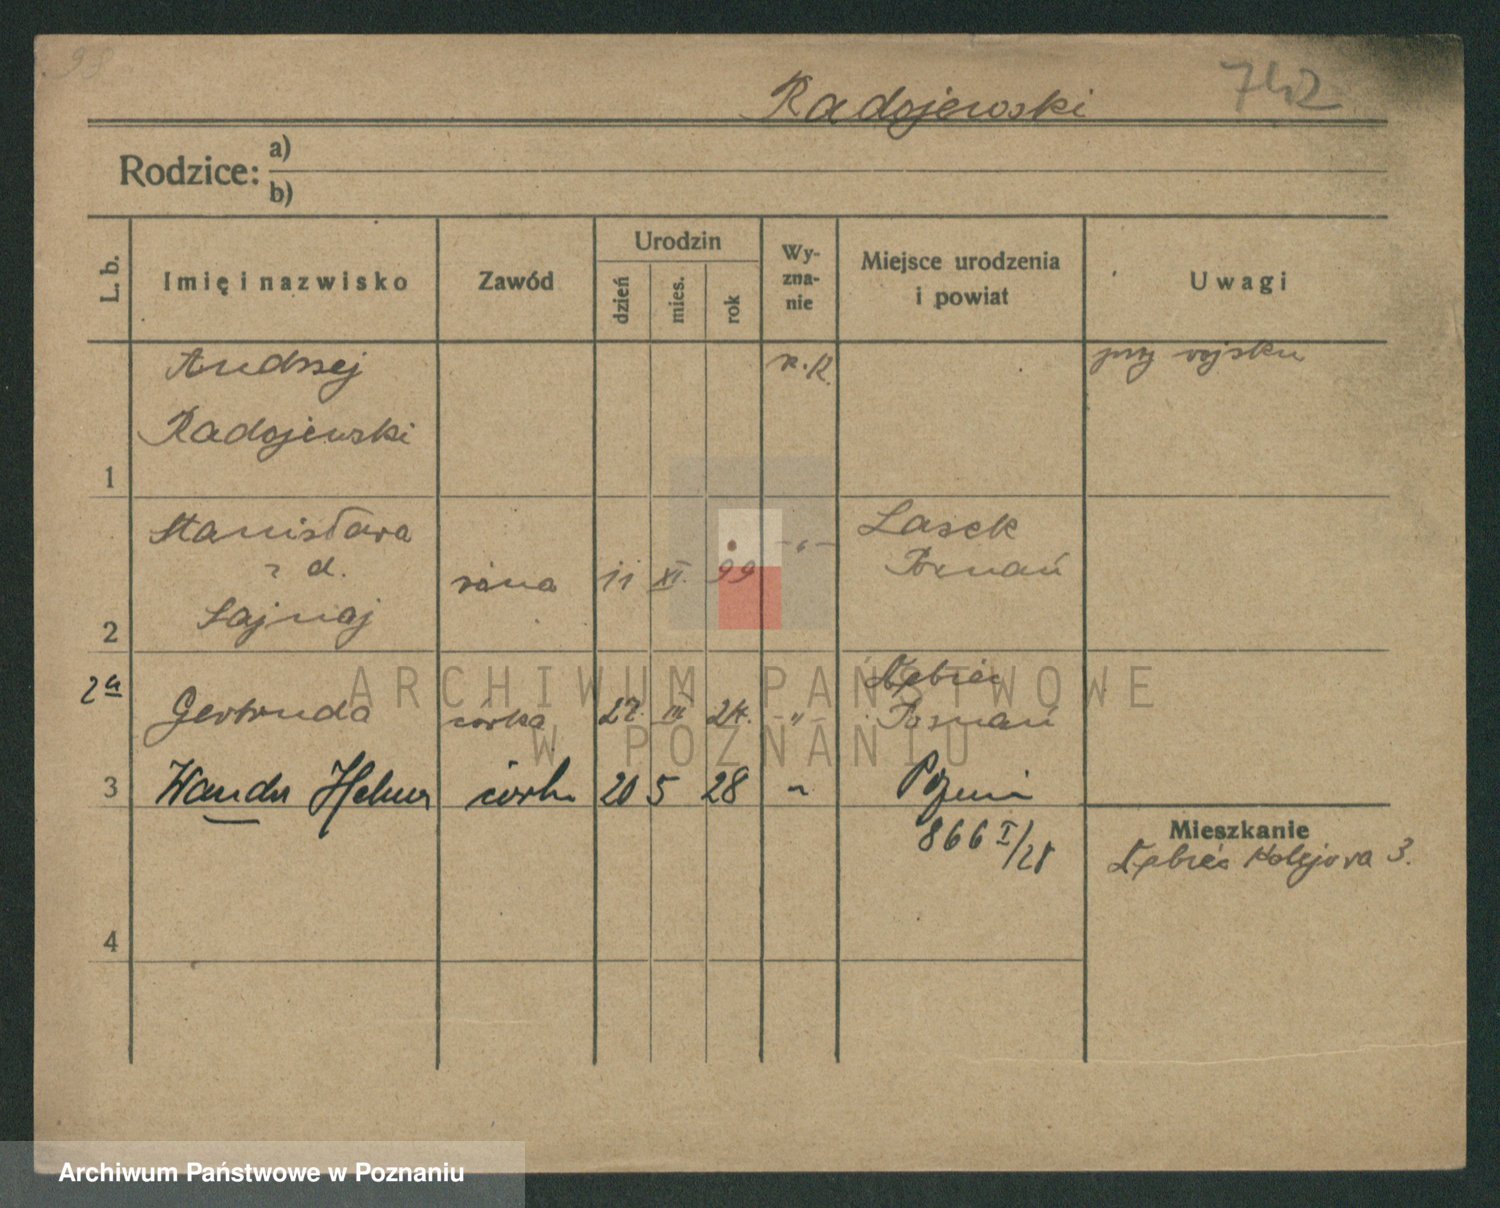 98
Radojewski
742
Rodzice:
a)
b)
L. b.
Imię i nazwisko
Zawód
Urodzin
dzień
mies.
rok
Wy-
zna-
nie
Miejsce urodzenia
i powiat
Uwagi
1
Andrzej
Radojewski
r.k.
przy wojsku
2
Stanisława
z d.
żona
11
XI.
99
-"-
Lasek
Poznań
2a
Gertruda
córka
27.
III
24.
"
Dębiec
Poznań
3
Wanda Helena
córka
20
5
28
"
Poznań
866 I/28
Mieszkanie
Dębiec Kolejowa 3.
4
ARCHIWUM PAŃSTWOWE
W POZNANIU
Archiwum Państwowe w Poznaniu